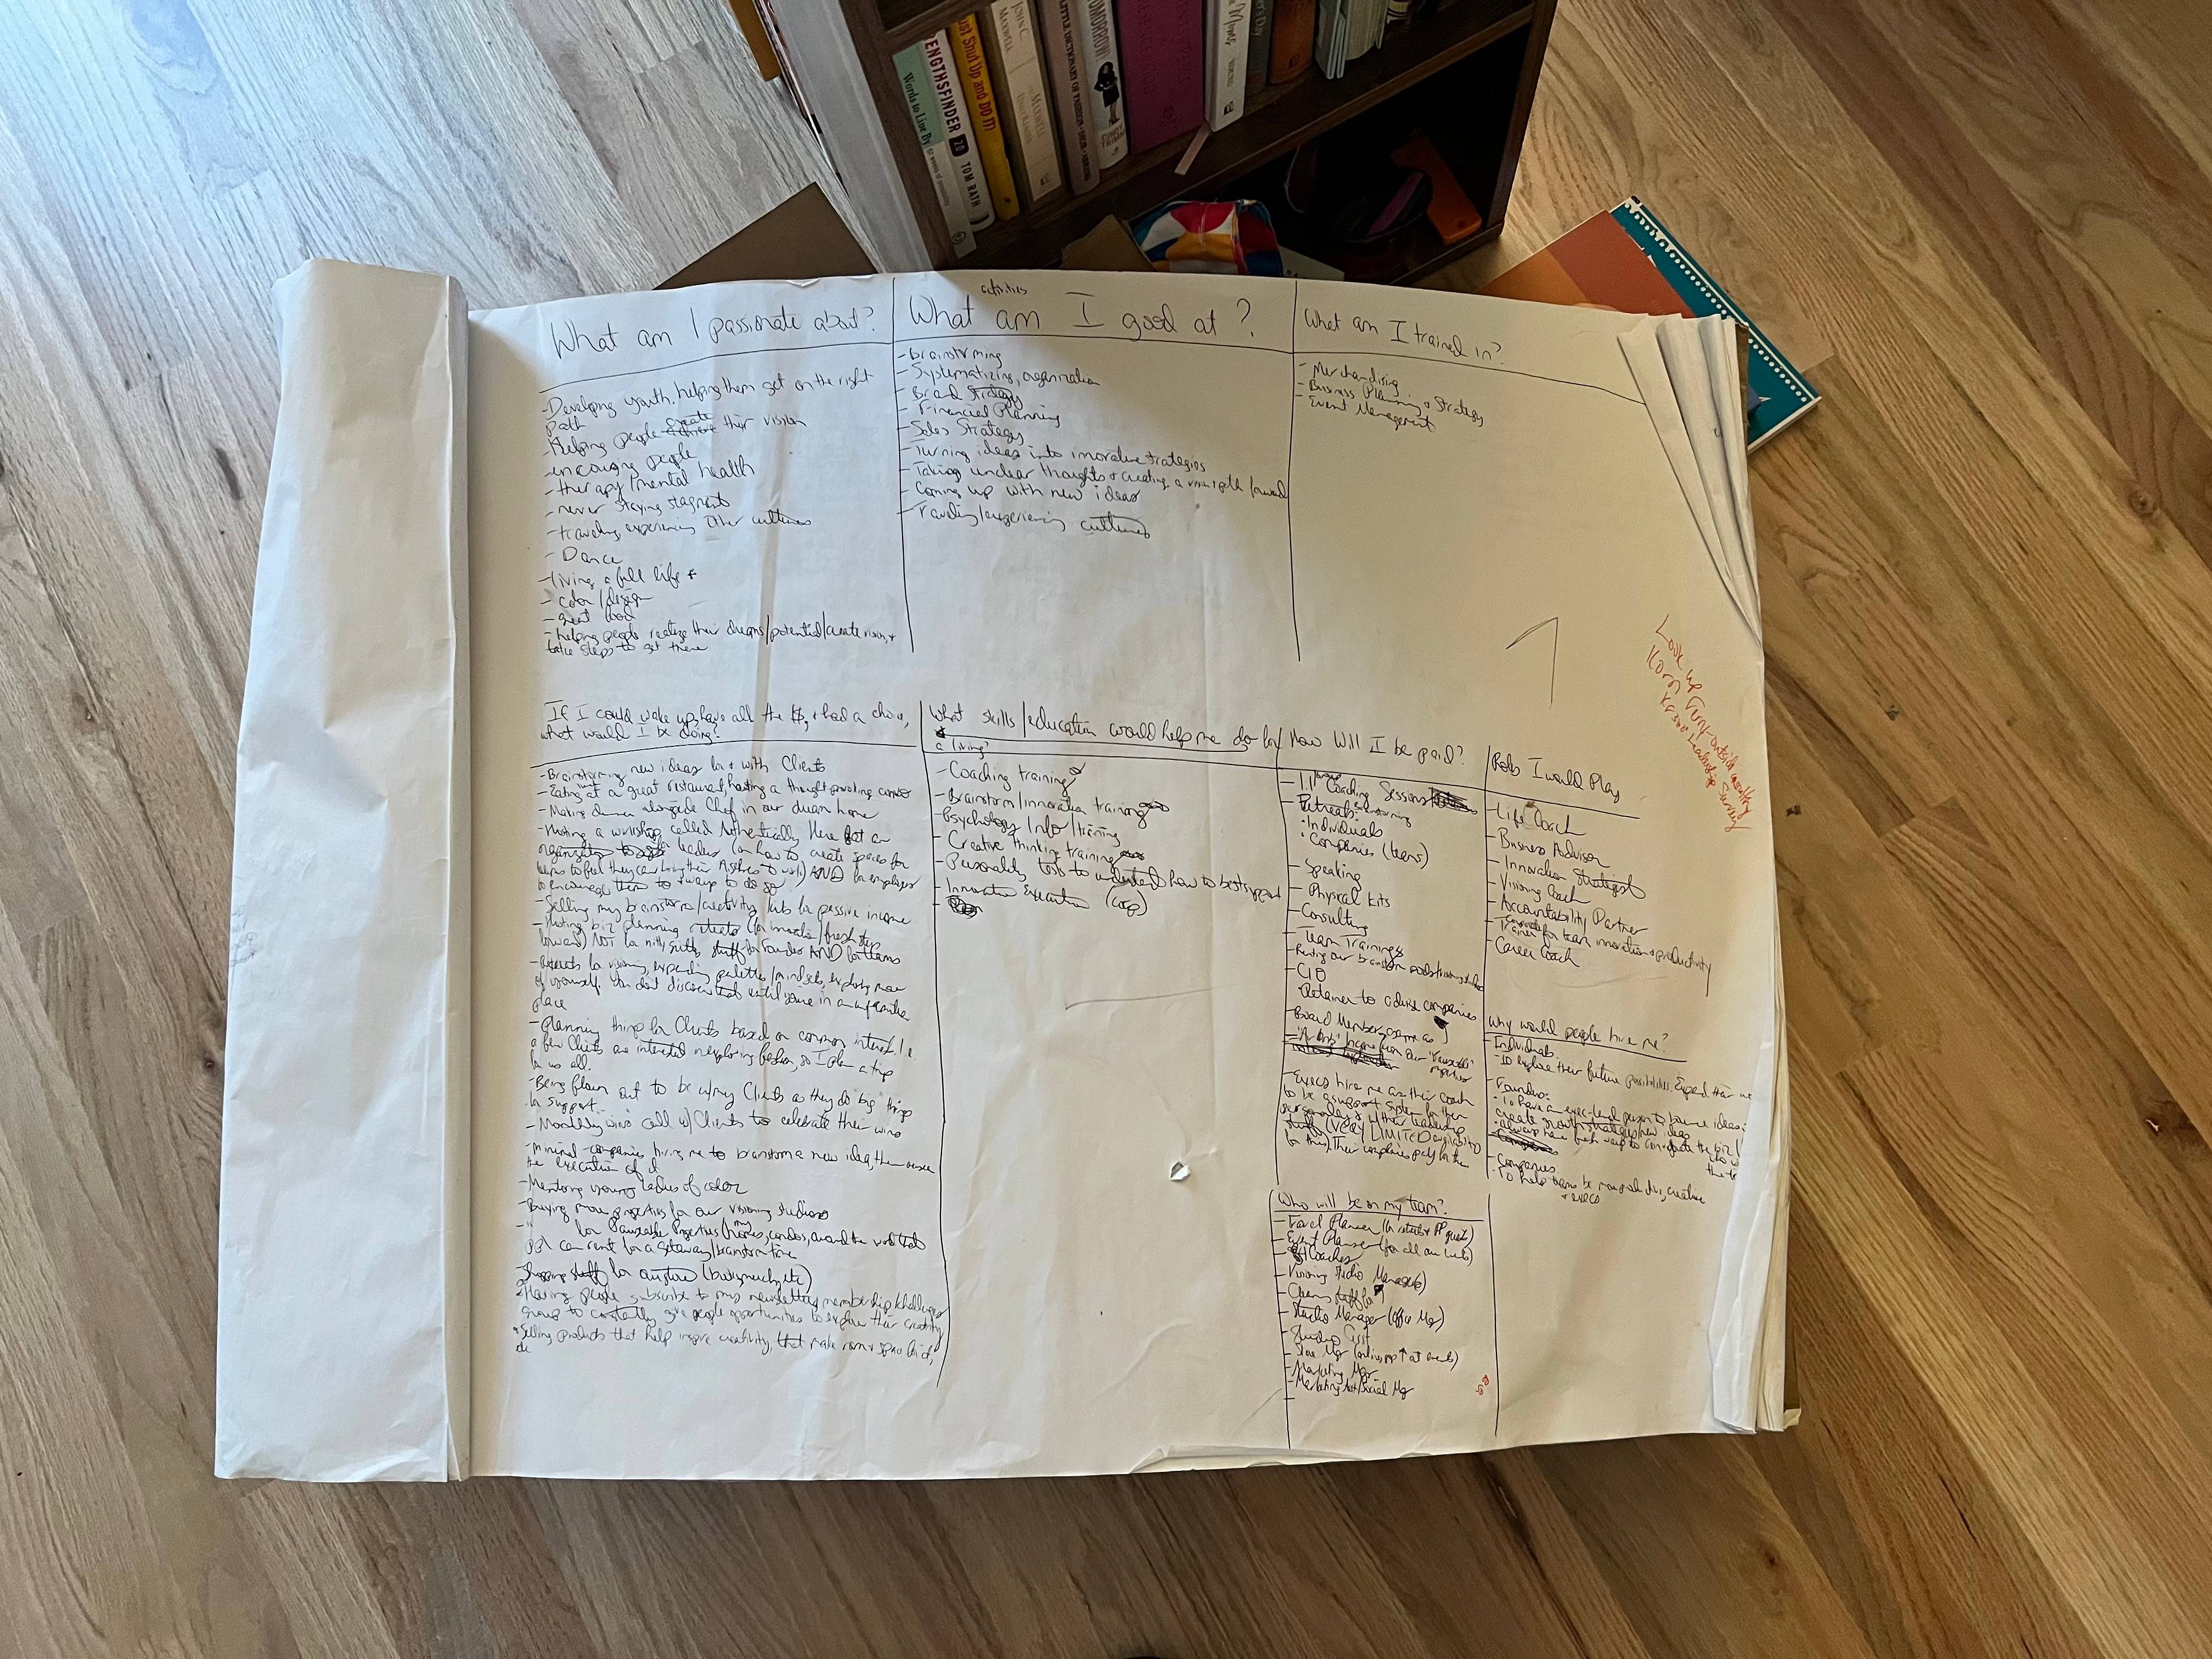 Words to Live By
STRENGTHSFINDER 2.0 TOM RATH
Just Shut Up and DO IT
JOHN C. MAXWELL
LITTLE DICTIONARY OF FASHION
TOMORROW
What am I passionate about?
- Developing youth, helping them get on the right
path
- Helping people create their vision
- encouraging people
- therapy/mental health
- never staying stagnent
- traveling, experiencing other cultures
- Dance
- living a full life
- color/design
- great food
- helping people realize their dreams/potential/create vision, +
take steps to get there
activities
What am I good at?
- brainstorming
- Systematizing, organization
- Brand Strategy
- Financial Planning
- Sales Strategy
- Turning ideas into innovative strategies
- Taking unclear thoughts + creating a vision + path forward
- Coming up with new ideas
- Traveling/experiencing cultures
What am I trained in?
- Merchandising
- Business Planning + Strategy
- Event Management
Look up
Korn Ferry
Leadership
Survey
If I could wake up, have all the $, + had a choice,
what would I be doing?
- Brainstorming new ideas for + with Clients
- Eating at a great restaurant, having a thought provoking convo
- Making dinner alongside Chef in our dream home
- Hosting a workshop called Authentically Here for an
leaders (on how to create spaces for
AND for employees
to encourage them to + ways to do so
- Selling my brainstorm/creativity kits for passive income
- Hosting biz planning retreats (for innovative/fresh
forward) NOT for nitty gritty stuff for Founders AND for teams
- Retreats for visioning, expanding palettes/mindsets, exploring more
of yourself. You don't discover that until you're in an unfamiliar
place
- Planning things for Clients based on common interest. I.e.
a few Clients are interested in exploring fashion, so I plan a trip
for us all.
- Being flown out to be w/my Clients as they do big things
for support.
- Monthly wins call w/Clients to celebrate their wins
- Minimal - companies hiring me to brainstorm a new idea, then oversee
the execution of it
- Mentoring young ladies of color
- Buying more properties for our visioning studios
- " for Pauseable Properties (homes, condos, around the world that
ppl can rent for a getaway/brainstorm time
- Shopping stuff for our store (buying merch, etc)
- Having people subscribe to my newsletter, membership/challenges
group to constantly give people opportunities to explore their creativity
- Selling products that help inspire creativity, that make room + space for it,
etc
What skills/education would help me do for
a living?
- Coaching training
- Brainstorm/innovation training
- Psychology Info/training
- Creative thinking training
- Personality tests to understand how to best support
- Innovation Execution (corp)
How Will I be paid?
- 1:1/group Coaching Sessions
- Retreats
· Individuals
· Companies (teams)
- Speaking
- Physical kits
- Consulting
- Team Trainings
- Renting our brainstorm pods/visioning studios
- CIO
· Retainer to advise companies
- Board Member, same as
- Execs hire me as their coach
to be a support system for them
personally + w/their leadership
(VERY LIMITED availability
for this). Their companies pay for them
Roles I would Play
- Life Coach
- Business Advisor
- Innovation Strategist
- Visioning Coach
- Accountability Partner
- Trainer for team innovation + productivity
- Career Coach
Why would people hire me?
- Individuals:
- To explore their future possibilities. Expand their
- Founders:
- To have an exec-level person to bounce ideas
create growth strategies/new ideas
- Companies
- To help teams be more productive, creative
+ execs
Who will be on my team?
- Travel Planner
- Event Planner (for all our events)
- Coaches
- Visioning Studio Manager(s)
- Studio Manager (office Mgr)
- Studio Asst
- Store Mgr
- Marketing Mgr
- Marketing Asst/Social Mgr